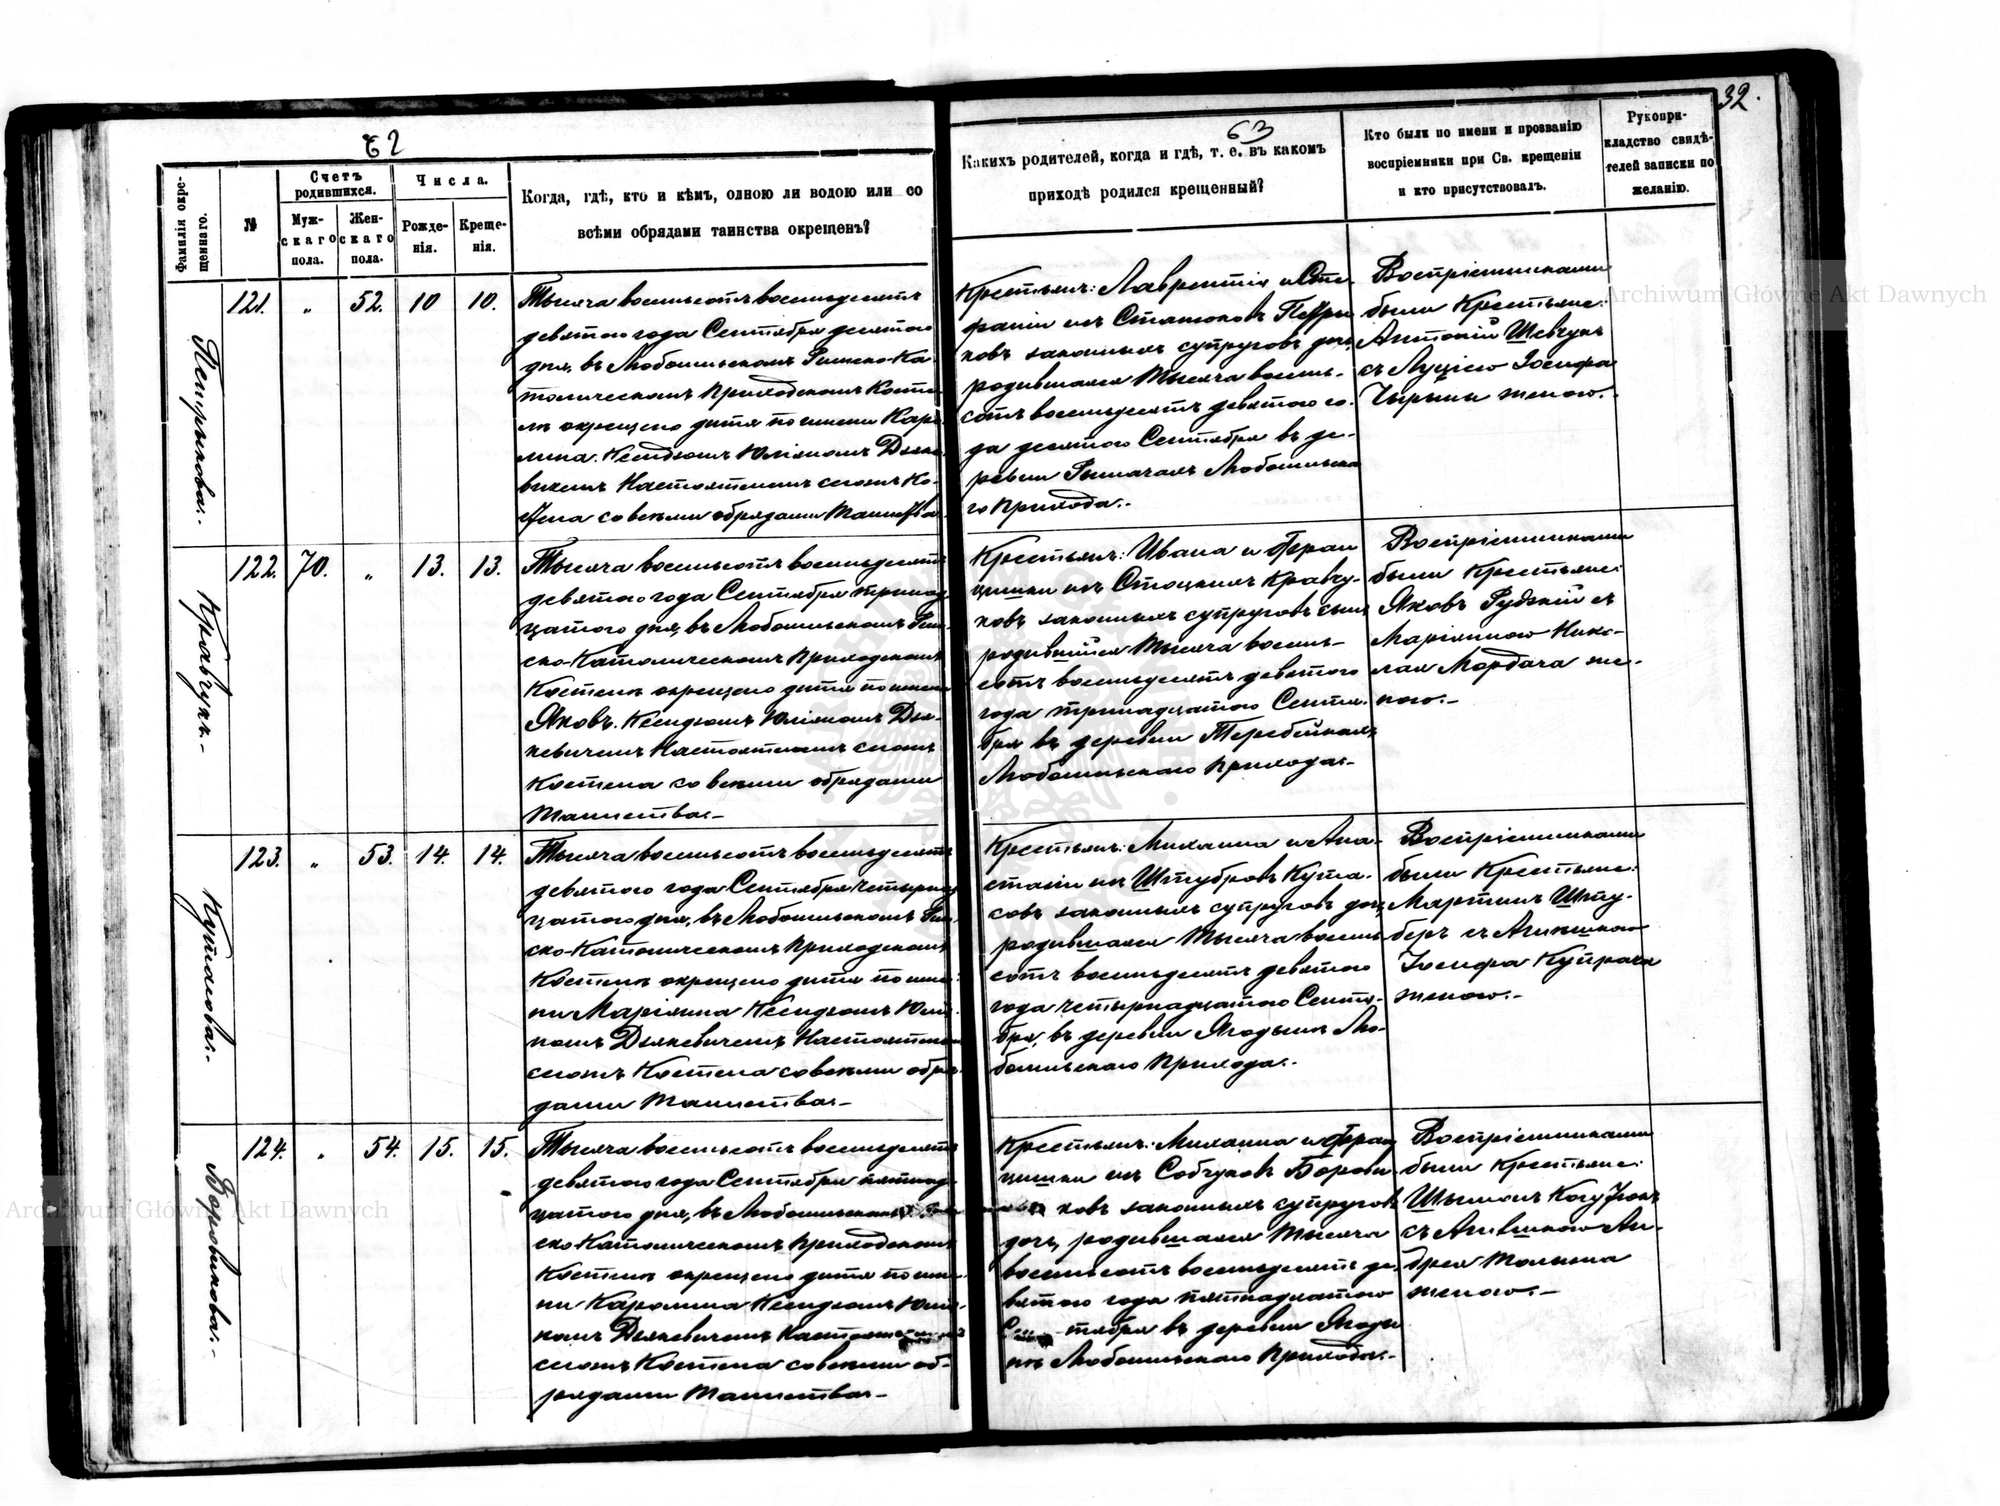 32.
62
63
Фамилія окре-
щеннаго.
№
Счетъ
родившихся.
Муж-
скаго
пола.
Жен-
скаго
пола.
Числа.
Рожде-
нія.
Креще-
нія.
Когда, гдѣ, кто и кѣмъ, одною ли водою или со
всѣми обрядами таинства окрещенъ?
Какихъ родителей, когда и гдѣ, т. е. въ какомъ
приходѣ родился крещенный?
Кто были по имени и прозванію
воспріемники при Св. крещеніи
и кто присутствовалъ.
Рукопри-
кладство свидѣ-
телей записки по
желанію.
Петрыкова.
121. „ 52. 10 10.
Тысяча восемьсотъ восемьдесятъ
девятого года Сентября десятого
дня, въ Любомльскомъ Римско-Ка-
толическомъ Приходскомъ Косте-
лѣ окрещено дитя по имени Каро-
лина. Ксендзомъ Юліяномъ Дзяке-
вичемъ Настоятелемъ сего Ко-
стела со всѣми обрядами Таинства.
Крестьянъ: Лаврентія и Сте-
фаніи изъ Стасюковъ Петры-
ковъ законныхъ супруговъ дочь,
родившаяся Тысяча восемь-
сотъ восемьдесятъ девятого го-
да десятого Сентября въ де-
ревни Рымачахъ Любомльска-
го Прихода.-
Воспріемниками
были Крестьяне:
Антоній Шевчукъ
съ Луціею Іосифа
женою.-
Кравчукъ.-
122. 70. „ 13. 13.
Тысяча восемьсотъ восемьдесятъ
девятого года Сентября тринад-
цатого дня, въ Любомльскомъ Рим-
ско-Католическомъ Приходскомъ
Костелѣ окрещено дитя по имени
Яковъ. Ксендзомъ Юліяномъ Дзя-
кевичемъ Настоятелемъ сего
Костела со всѣми обрядами
Таинства.-
Крестьянъ: Ивана и Фран-
цишки изъ Стоцкихъ Кравчу-
ковъ законныхъ супруговъ сынъ,
родившійся Тысяча восемь-
сотъ восемьдесятъ девятого
года тринадцатого Сентя-
бря въ деревни Теребейкахъ
Любомльскаго Прихода.-
Воспріемниками
были Крестьяне:
Яковъ Рудзкій съ
Маріянною Нико-
лая Мордача же-
ною.-
Кутасова.-
123. „ 53. 14. 14.
Тысяча восемьсотъ восемьдесятъ
девятого года Сентября четырнад-
цатого дня, въ Любомльскомъ Рим-
ско-Католическомъ Приходскомъ
Костелѣ окрещено дитя по име-
ни Маріянна Ксендзомъ Юлія-
номъ Дзякевичемъ, Настоятелемъ
сего Костела со всѣми обря-
дами Таинства.-
Крестьянъ: Михаила и Ана-
стасіи изъ Штубровъ Кута-
совъ законныхъ супруговъ дочь,
родившаяся Тысяча восемь-
сотъ восемьдесятъ девятого
года четырнадцатого Сентя-
бря, въ деревни Ягодзинѣ Лю-
бомльскаго Прихода.-
Воспріемниками
были Крестьяне:
Мартинъ Шту-
беръ съ
Іосифа Купрача
женою.-
Боровикова.-
124. „ 54. 15. 15.
Тысяча восемьсотъ восемьдесятъ
девятого года Сентября пятнад-
цатого дня, въ Любомльскомъ
ско-Католическомъ Приходскомъ
Костелѣ окрещено дитя по име-
ни Каролина Ксендзомъ Юлія-
номъ Дзякевичемъ Настоятелемъ
сего Костела со всѣми об-
рядами Таинства.-
Крестьянъ: Михаила и Фран-
цишки изъ Собчуковъ Борови-
ковъ законныхъ супруговъ
дочь, родившаяся Тысяча
восемьсотъ восемьдесятъ де-
вятого года пятнадцатого
Сентября въ деревни Ягодзи-
нѣ Любомльскаго Прихода.-
Воспріемниками
были Крестьяне:
Шымонъ
съ Агнѣшкою Ан-
дрея
женою.-
Archiwum Główne Akt Dawnych
Archiwum Główne Akt Dawnych